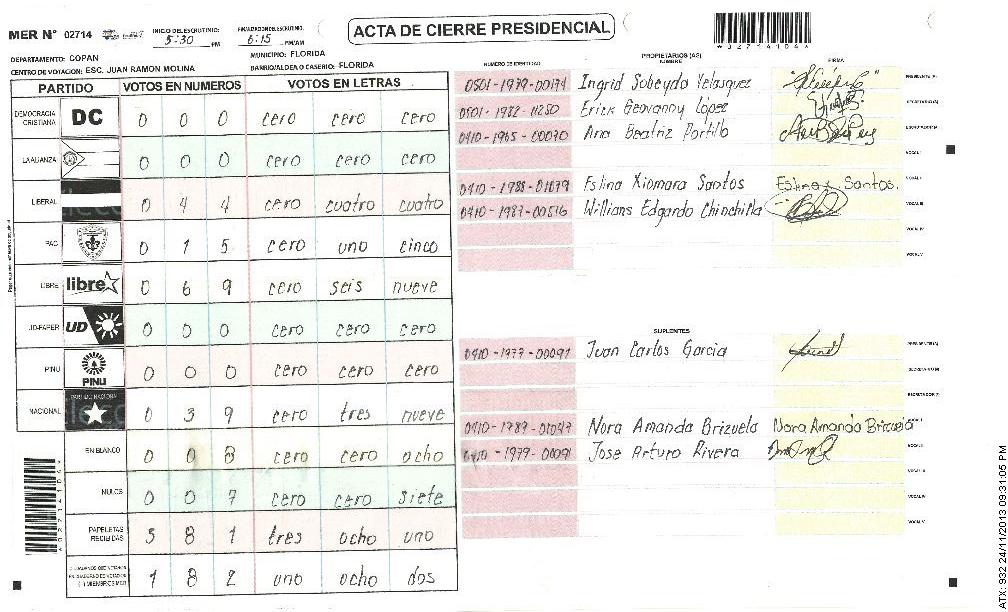 MER N° 02714
INICIO DEL ESCRUTINIO: 5:30 PM
FINALIZACION DE ESCRUTINIO: 6:15 PM/AM
ACTA DE CIERRE PRESIDENCIAL
DEPARTAMENTO: COPAN
MUNICIPIO: FLORIDA
CENTRO DE VOTACION: ESC. JUAN RAMON MOLINA
BARRIO/ALDEA O CASERIO: FLORIDA
PARTIDO VOTOS EN NUMEROS VOTOS EN LETRAS
DEMOCRACIA CRISTIANA DC 0 0 0 cero cero cero
LA ALIANZA 0 0 0 cero cero cero
LIBERAL 0 4 4 cero cuatro cuatro
PAC 0 1 5 cero uno cinco
LIBRE libre 0 6 9 cero seis nueve
UD-FAPER UD 0 0 0 cero cero cero
PINU PINU 0 0 0 cero cero cero
NACIONAL 0 3 9 cero tres nueve
EN BLANCO 0 0 8 cero cero ocho
NULOS 0 0 7 cero cero siete
PAPELETAS RECIBIDAS 3 8 1 tres ocho uno
1 8 2 uno ocho dos
NUMERO DE IDENTIDAD
PROPIETARIOS (AS)
NOMBRE
FIRMA
0501-1979-00174 Ingrid Sobeyda Velasquez PRESIDENTE (A)
0501-1982-11280 Erick Geovanny López SECRETARIO (A)
0410-1965-00070 Ana Beatriz Portillo ESCRUTADOR (A)
VOCAL I
0410-1988-01079 Eslina Xiomara Santos Eslina X Santos. VOCAL II
0410-1987-00516 Willians Edgardo Chinchilla VOCAL III
VOCAL IV
VOCAL V
SUPLENTES
0410-1977-00091 Juan Carlos Garcia PRESIDENTE (A)
SECRETARIO (A)
ESCRUTADOR (A)
0410-1789-01047 Nora Amanda Brizuela Nora Amanda Brizuela VOCAL I
0410-1979-00091 Jose Arturo Rivera VOCAL II
VOCAL III
VOCAL IV
VOCAL V
ATX: 932 24/11/2013 09:31:05 PM